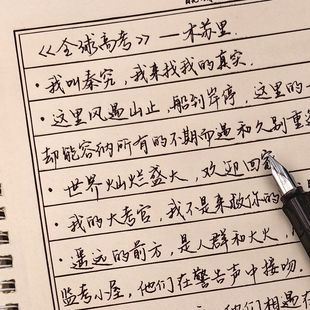 《全球高考》——木苏里
·我叫秦究，我来找我的真实.
·这里风遇山止，船到岸停，这里的一
却能容纳所有的不期而遇和久别重
·世界灿烂盛大，欢迎回家
·我的大考官，我不是来救你的
·遥远的前方，是人群和大火，
监考小屋，他们在警告声中接吻.
他们相遇在